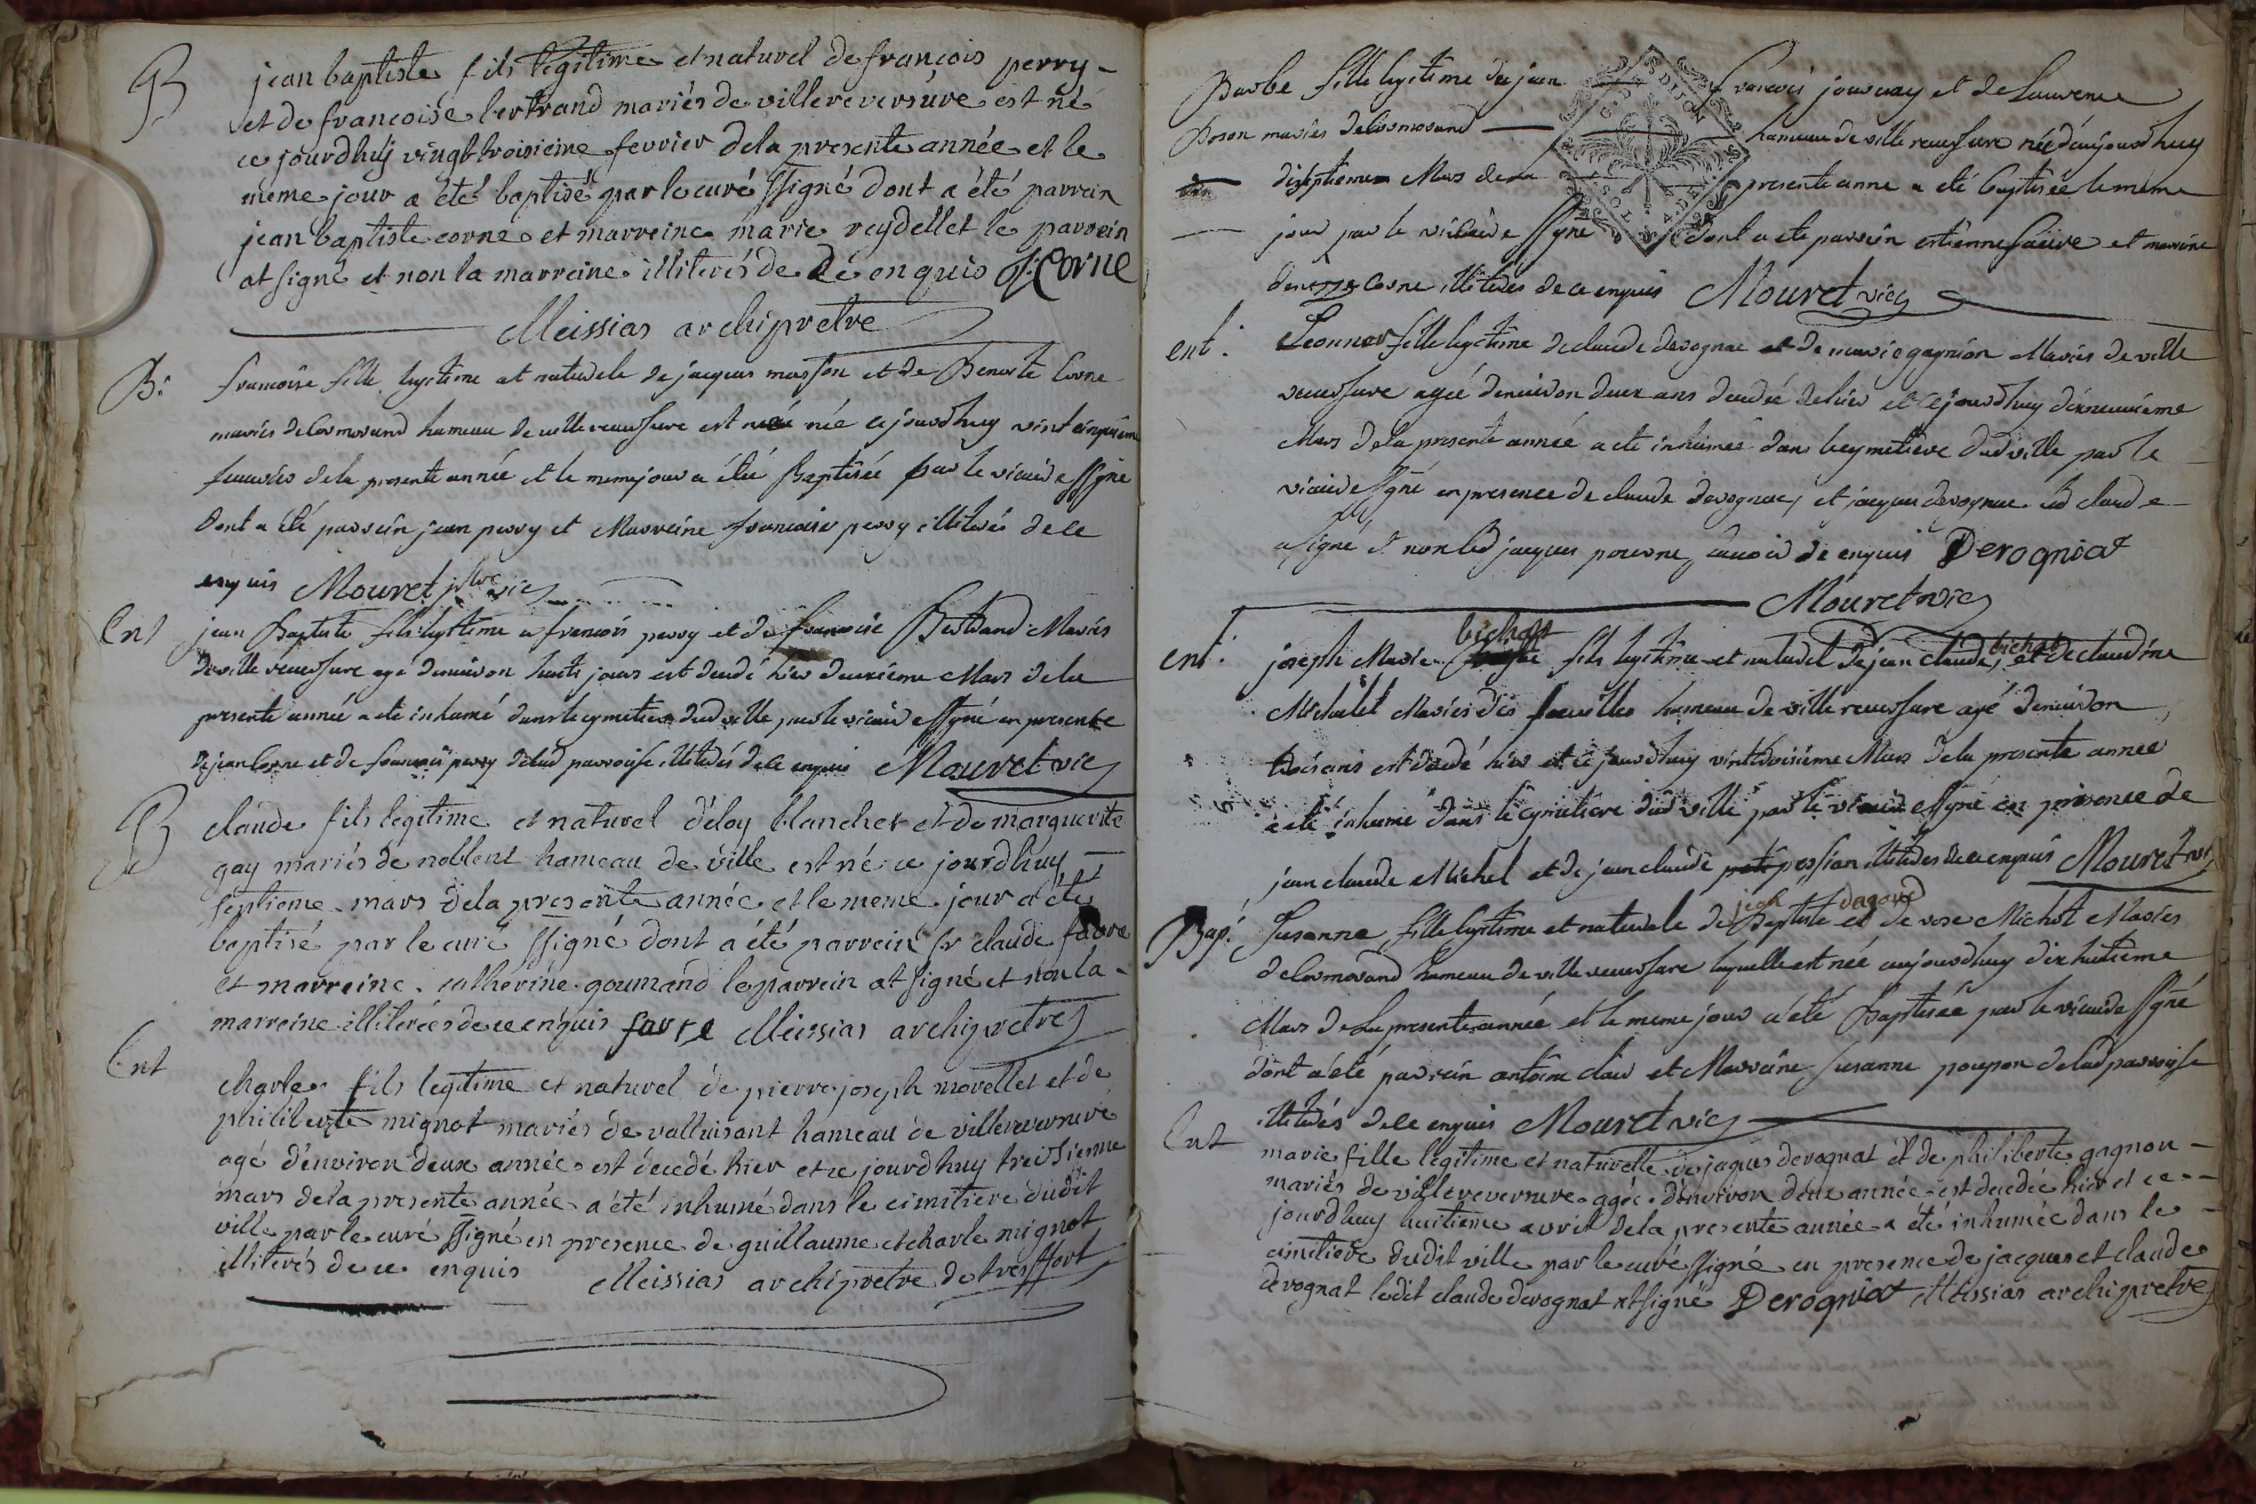 B
jean baptiste fils legitime et naturel de françois perry
et de francoise bertrand mariés de villereversure est né
ce jourdhuy vingt troisieme fevrier dela presente année et le
meme jour a été baptisé par le curé ssigné dont a été parrein
jean baptiste corne et marreine marie reydellet le parrein
at signé et non la marreine illiterés de ce enquis J: Corne
Meissias archipretre
B:
francoise fille legitime et naturele de jacques masson et de Benoite Corne
mariés de Cormorand hameau de ville reversure est née ce jourdhuy vint cinquieme
fevrier dela presente année et le meme jour a été Baptisée par le vicaire ssigné
Dont a été parrein jean perry et Marreine francoise perry illiterés de ce
enquis Mouret ptre vic
Ent
jean Baptiste fils legitime a francois perry et de francoise Bertrand Mariés
de ville reversure agé denviron huits jours est decedé hier deuxieme Mars dela
presente année a eté inhumé dans le cymetiere dud ville par le vicaire ssigné en presence
de jean Corne et de francois perry delad parroisse illiterés de ce enquis Mouret vic
B
claude fils legitime et naturel d'eloy blanchet et de marguerite
gay mariés de noblens hameau de ville est né ce jourdhuy
septieme mars dela presente année et le meme jour a été
baptisé par le curé ssigné dont a été parrein sr claude favre
et marreine catherine goumand le parrein at signé et non la
marreine illiterées de ce enquis favre Meissias archipretre
Ent
charles fils legitime et naturel de pierre joseph morellet et de
philiberte mignot mariés de valluisant hameau de villereversure
agé d'environ deux années est decedé hier et ce jourdhuy treisieme
mars dela presente année a été inhumé dans le cimitiere dudit
ville par le curé ssigné en presence de guillaume et charle mignot
illiterés de ce enquis Meissias archipretre de tressfort
Barbe fille legitime de jean francois jouvray et de Laurence
Boson mariés de Cormorand hameau de ville reversure née daujourdhuy
dixseptieme Mars dela presente anne a eté baptisée le meme
jour par le vicaire ssigne dont a ete parrein estienne faivre et marreine
Corne illiterés de ce enquis Mouret vic
ent:
Leonner fille legitime de claude derognac et de marie gagnion Mariés de ville
reversure ageé denviron deux ans decedeé dehier et ce jourdhuy dixneuvieme
Mars dela presente année a ete inhumeé dans le cymetiere dud ville par le
vicaire ssigné en presence de claude derognac et jacques derognac led claude
a signé et non led jacques pour ne savoir de enquis Derogniat
Mouret vic
ent:
joseph Marie bichat fils legitime et naturel de jean claude bichat et de claudine
Michalet Mariés des feuilles hameau de ville reversure agé denviron
trois ans est decedé hier et ce jourdhuy vint troisieme Mars dela presente année
a eté inhumé dans le cymetiere dud ville par le vicaire ssigné en presence de
jean claude Michel et de jean claude possian illiterés de ce enquis Mouret vic
Bap:
Susanne fille legitime et naturele de jean Baptiste dagard et de rose Michot Mariés
de Cormorand hameau de ville reversure laquelle est née aujourdhuy dix huitieme
Mars dela presente année et le meme jour a été Baptisée par le vicaire ssigné
dont a été parrein antoine clair et Marreine susanne poupon delad parroisse
illiterés de ce enquis Mouret vic
Ent
marie fille legitime et naturelle de jaques derognat et de philiberte gagnon
mariés de villereversure agée d'environ deux année est decedée hier et ce
jourdhuy huitieme avril dela presente année a été inhumée dans le
cimitiere dudit ville par le curé ssigné en presence de jacques et claude
derognat ledit claude derognat at signé Derogniat Meissias archipretre